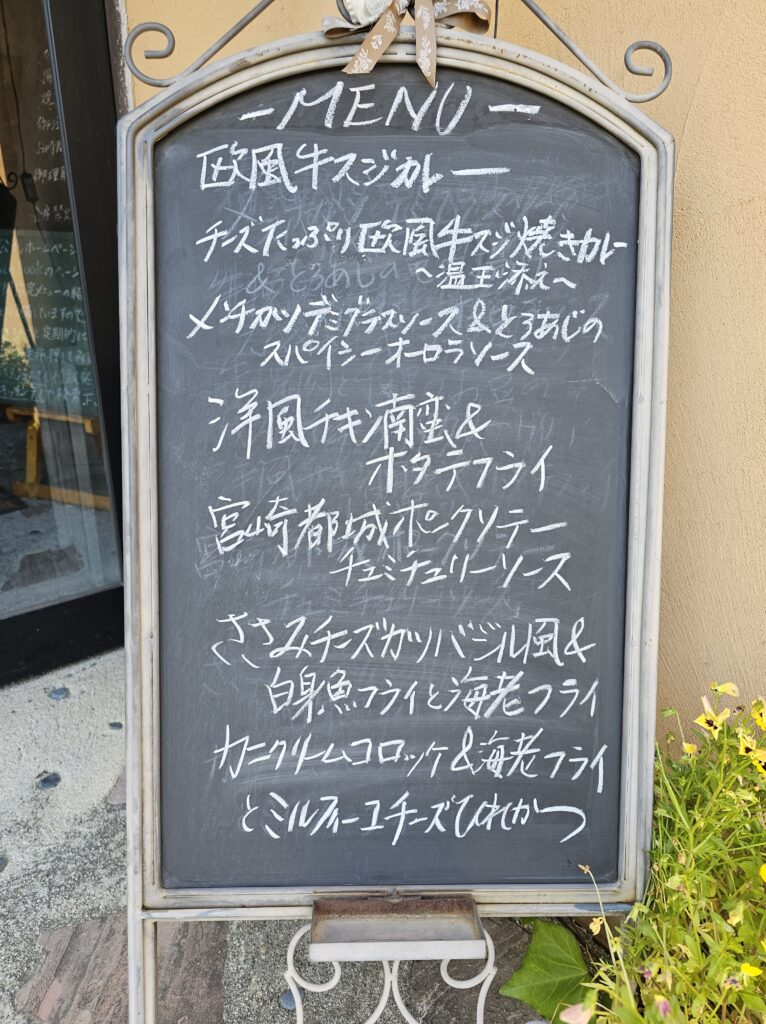 -MENU-
欧風牛スジカレー
チーズたっぷり欧風牛スジ焼きカレー
〜温玉添え〜
メンチカツデミグラスソース&とろあじの
スパイシーオーロラソース
洋風チキン南蛮&
ホタテフライ
宮崎都城ポークソテー
チュミチュリーソース
ささみチーズカツバジル風&
白身魚フライと海老フライ
カニクリームコロッケ&海老フライ
とミルフィーユチーズひれかつ